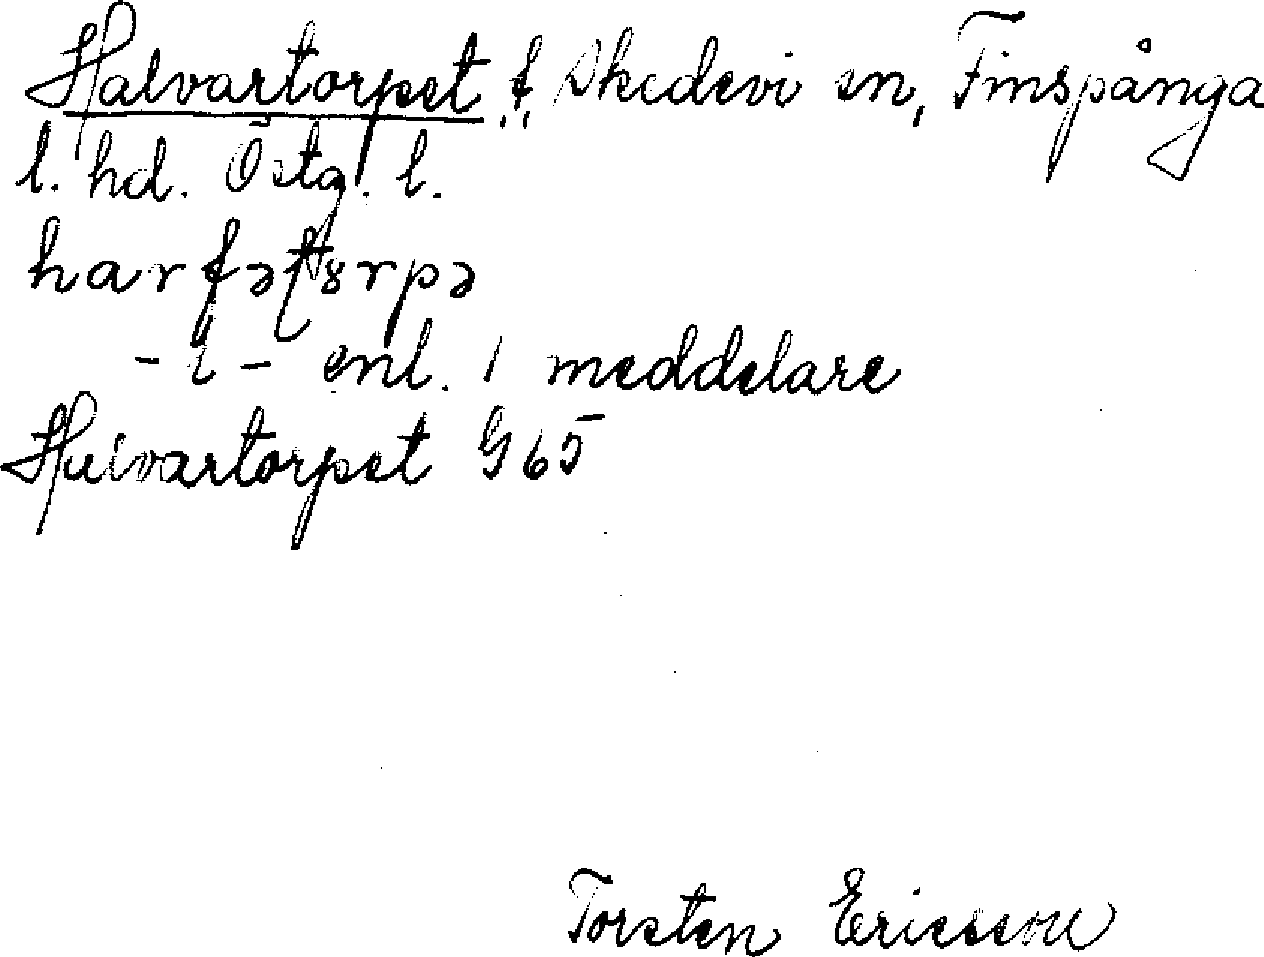 Halvartorpet f, Skedevi sn, Finspånga
l. hd. Östg. l.
harfəʃtɤrpə
- l - enl. 1 meddelare
Halvartorpet G 65
Torsten Ericsson